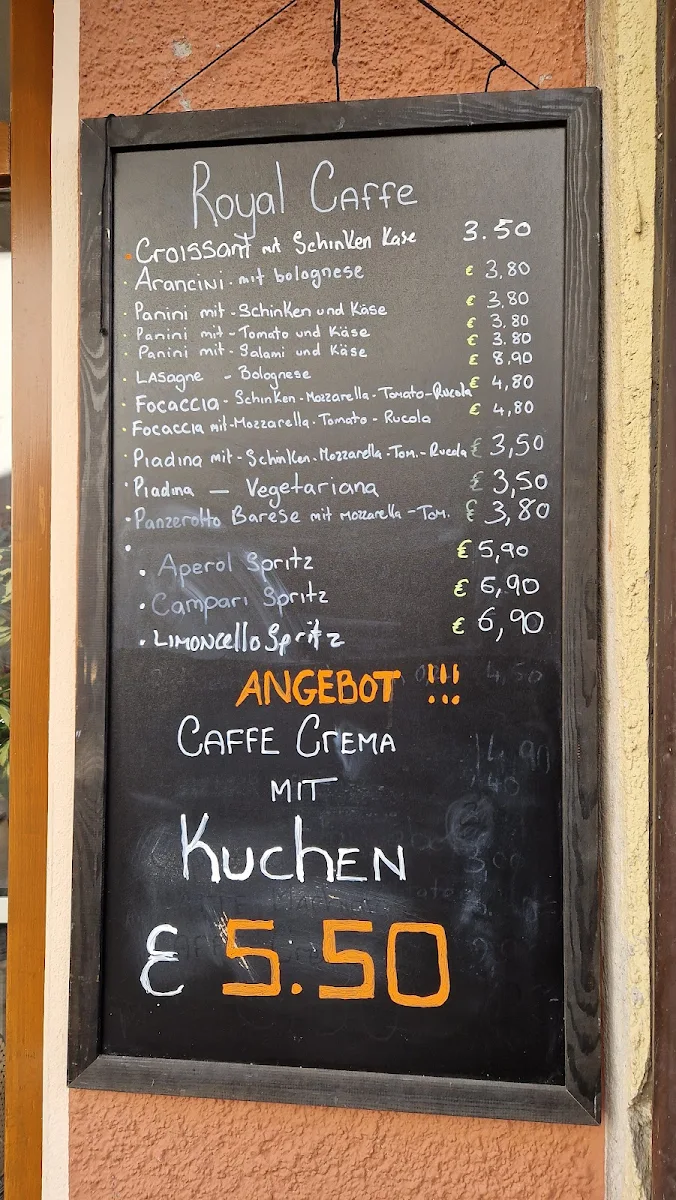 Royal Caffe
Croissant mit Schinken Käse 3.50
Arancini - mit bolognese € 3,80
Panini mit - Schinken und Käse € 3.80
Panini mit - Tomato und Käse € 3,80
Panini mit - Salami und Käse € 3.80
Lasagne - Bolognese € 8,90
Focaccia - Schinken - Mozzarella - Tomato - Rucola € 4,80
Focaccia mit - Mozzarella - Tomato - Rucola € 4,80
Piadina mit - Schinken - Mozzarella - Tom. - Rucola € 3,50
Piadina — Vegetariana € 3,50
Panzerotto Barese mit Mozzarella - Tom. € 3,80
Aperol Spritz € 5,90
Campari Spritz € 6,90
Limoncello Spritz € 6,90
ANGEBOT !!!
CAFFE CREMA
MIT
KUCHEN
€ 5.50